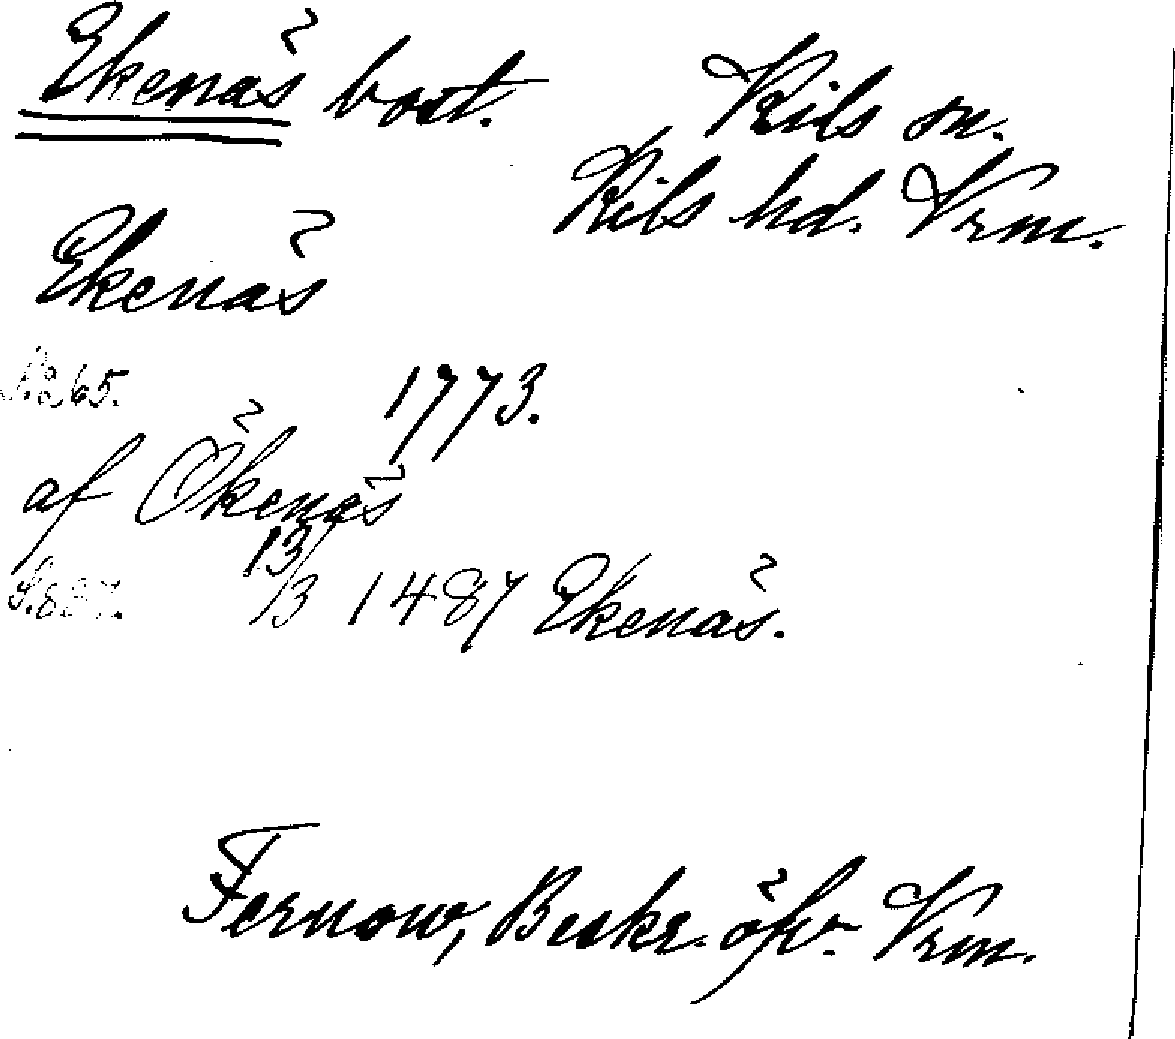 Ekenäs bost. Kils sn.
Kils hd. Vrm.
Ekenäs
S. 265. 1773.
af Ökenäs
S. 637. 13/3 1487 Ekenäs.
Fernow, Beskr. öfv. Vrm.